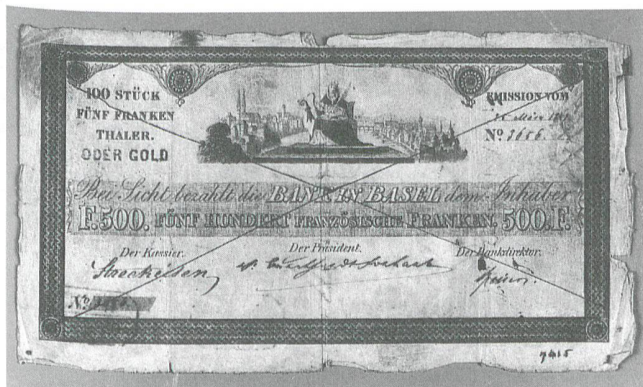 100 STÜCK
FÜNF FRANKEN
THALER.
ODER GOLD
EMISSION VOM
März
Nº 3656
Bei Sicht bezahlt die BANK IN BASEL dem Inhaber
F.500. FÜNF HUNDERT FRANZÖSISCHE FRANKEN. 500.F.
Der Kassier.
Der Präsident.
Der Bankdirektor.
Staechelsen
Nº
9415